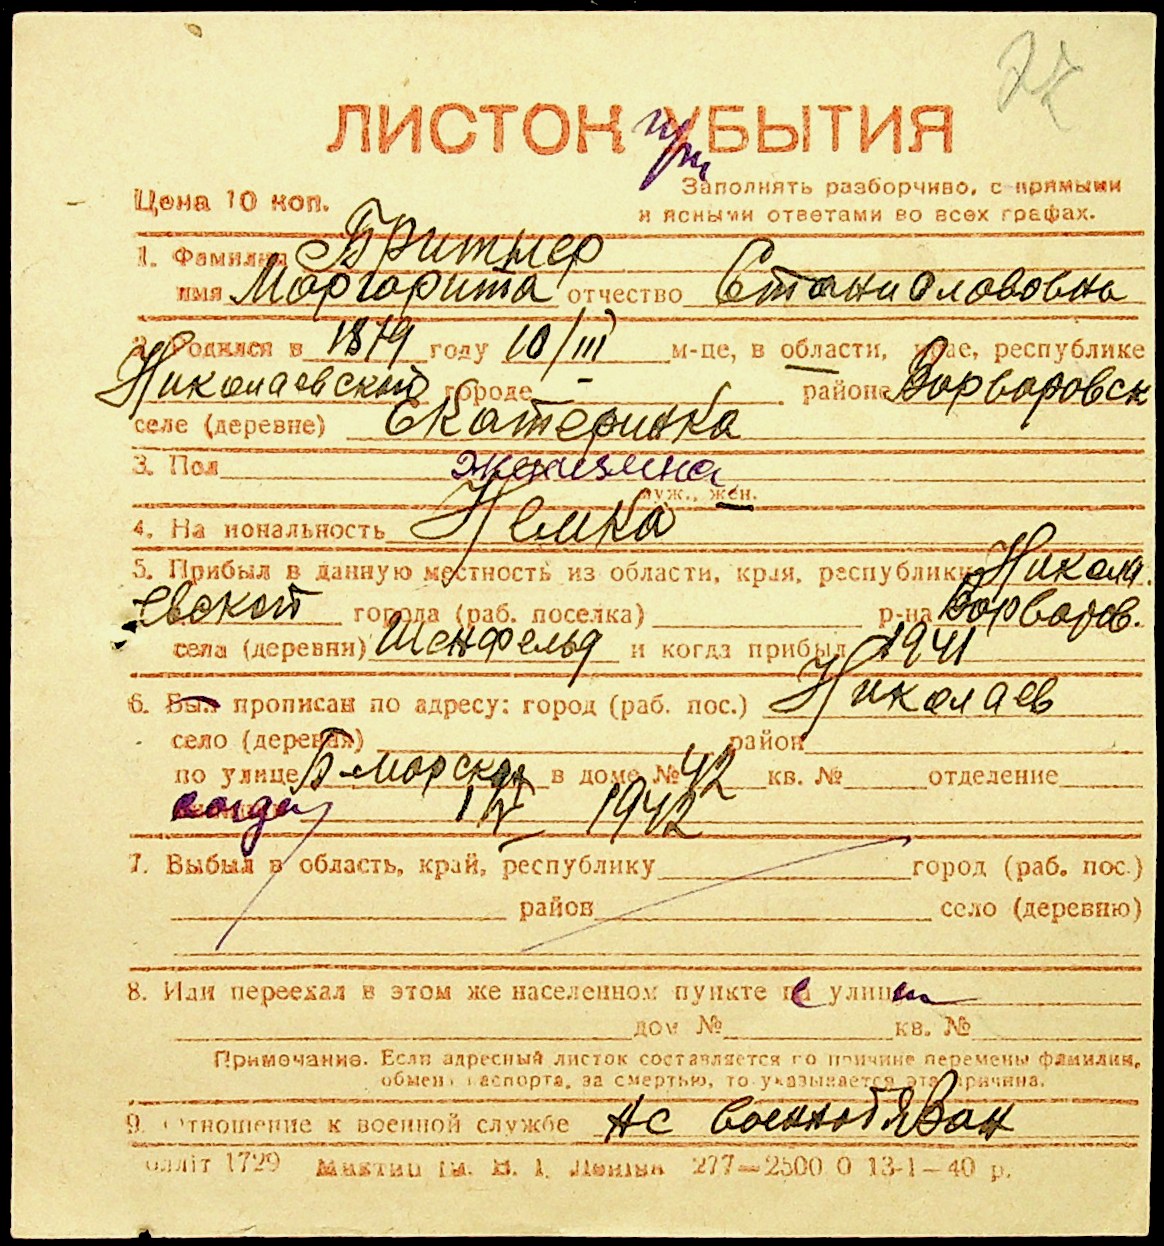 ЛИСТОК при УБЫТИЯ
Цена 10 коп.
Заполнять разборчиво, с прямыми
и ясными ответами во всех графах.
1. Фамилия Бритнер
имя Моргорита отчество Станиславовна
2. Родился в 1879 году 10/III м-це, в области, крае, республике
Николаевской городе - районе Ворворовск
селе (деревне) Екатеринка
3. Пол женщина
муж., жен.
4. Национальность Немка
5. Прибыл в данную местность из области, края, республики Никола
евской города (раб. поселка) р-на Ворворов.
села (деревни) Шенфельд и когда прибыл 1941
6. Был прописан по адресу: город (раб. пос.) Николаев
село (деревня) район
по улице Б-морская в доме № 42 кв. № отделение
когда 1942
7. Выбыл в область, край, республику город (раб. пос.)
район село (деревню)
8. Или переехал в этом же населенном пункте улиц
дом № кв. №
Примечание. Если адресный листок составляется по причине перемены фамилии,
обмена паспорта, за смертью, то указывается эта причина.
9. Отношение к военной службе не военнобязан
1729 277—2500 0 13-1—40 р.